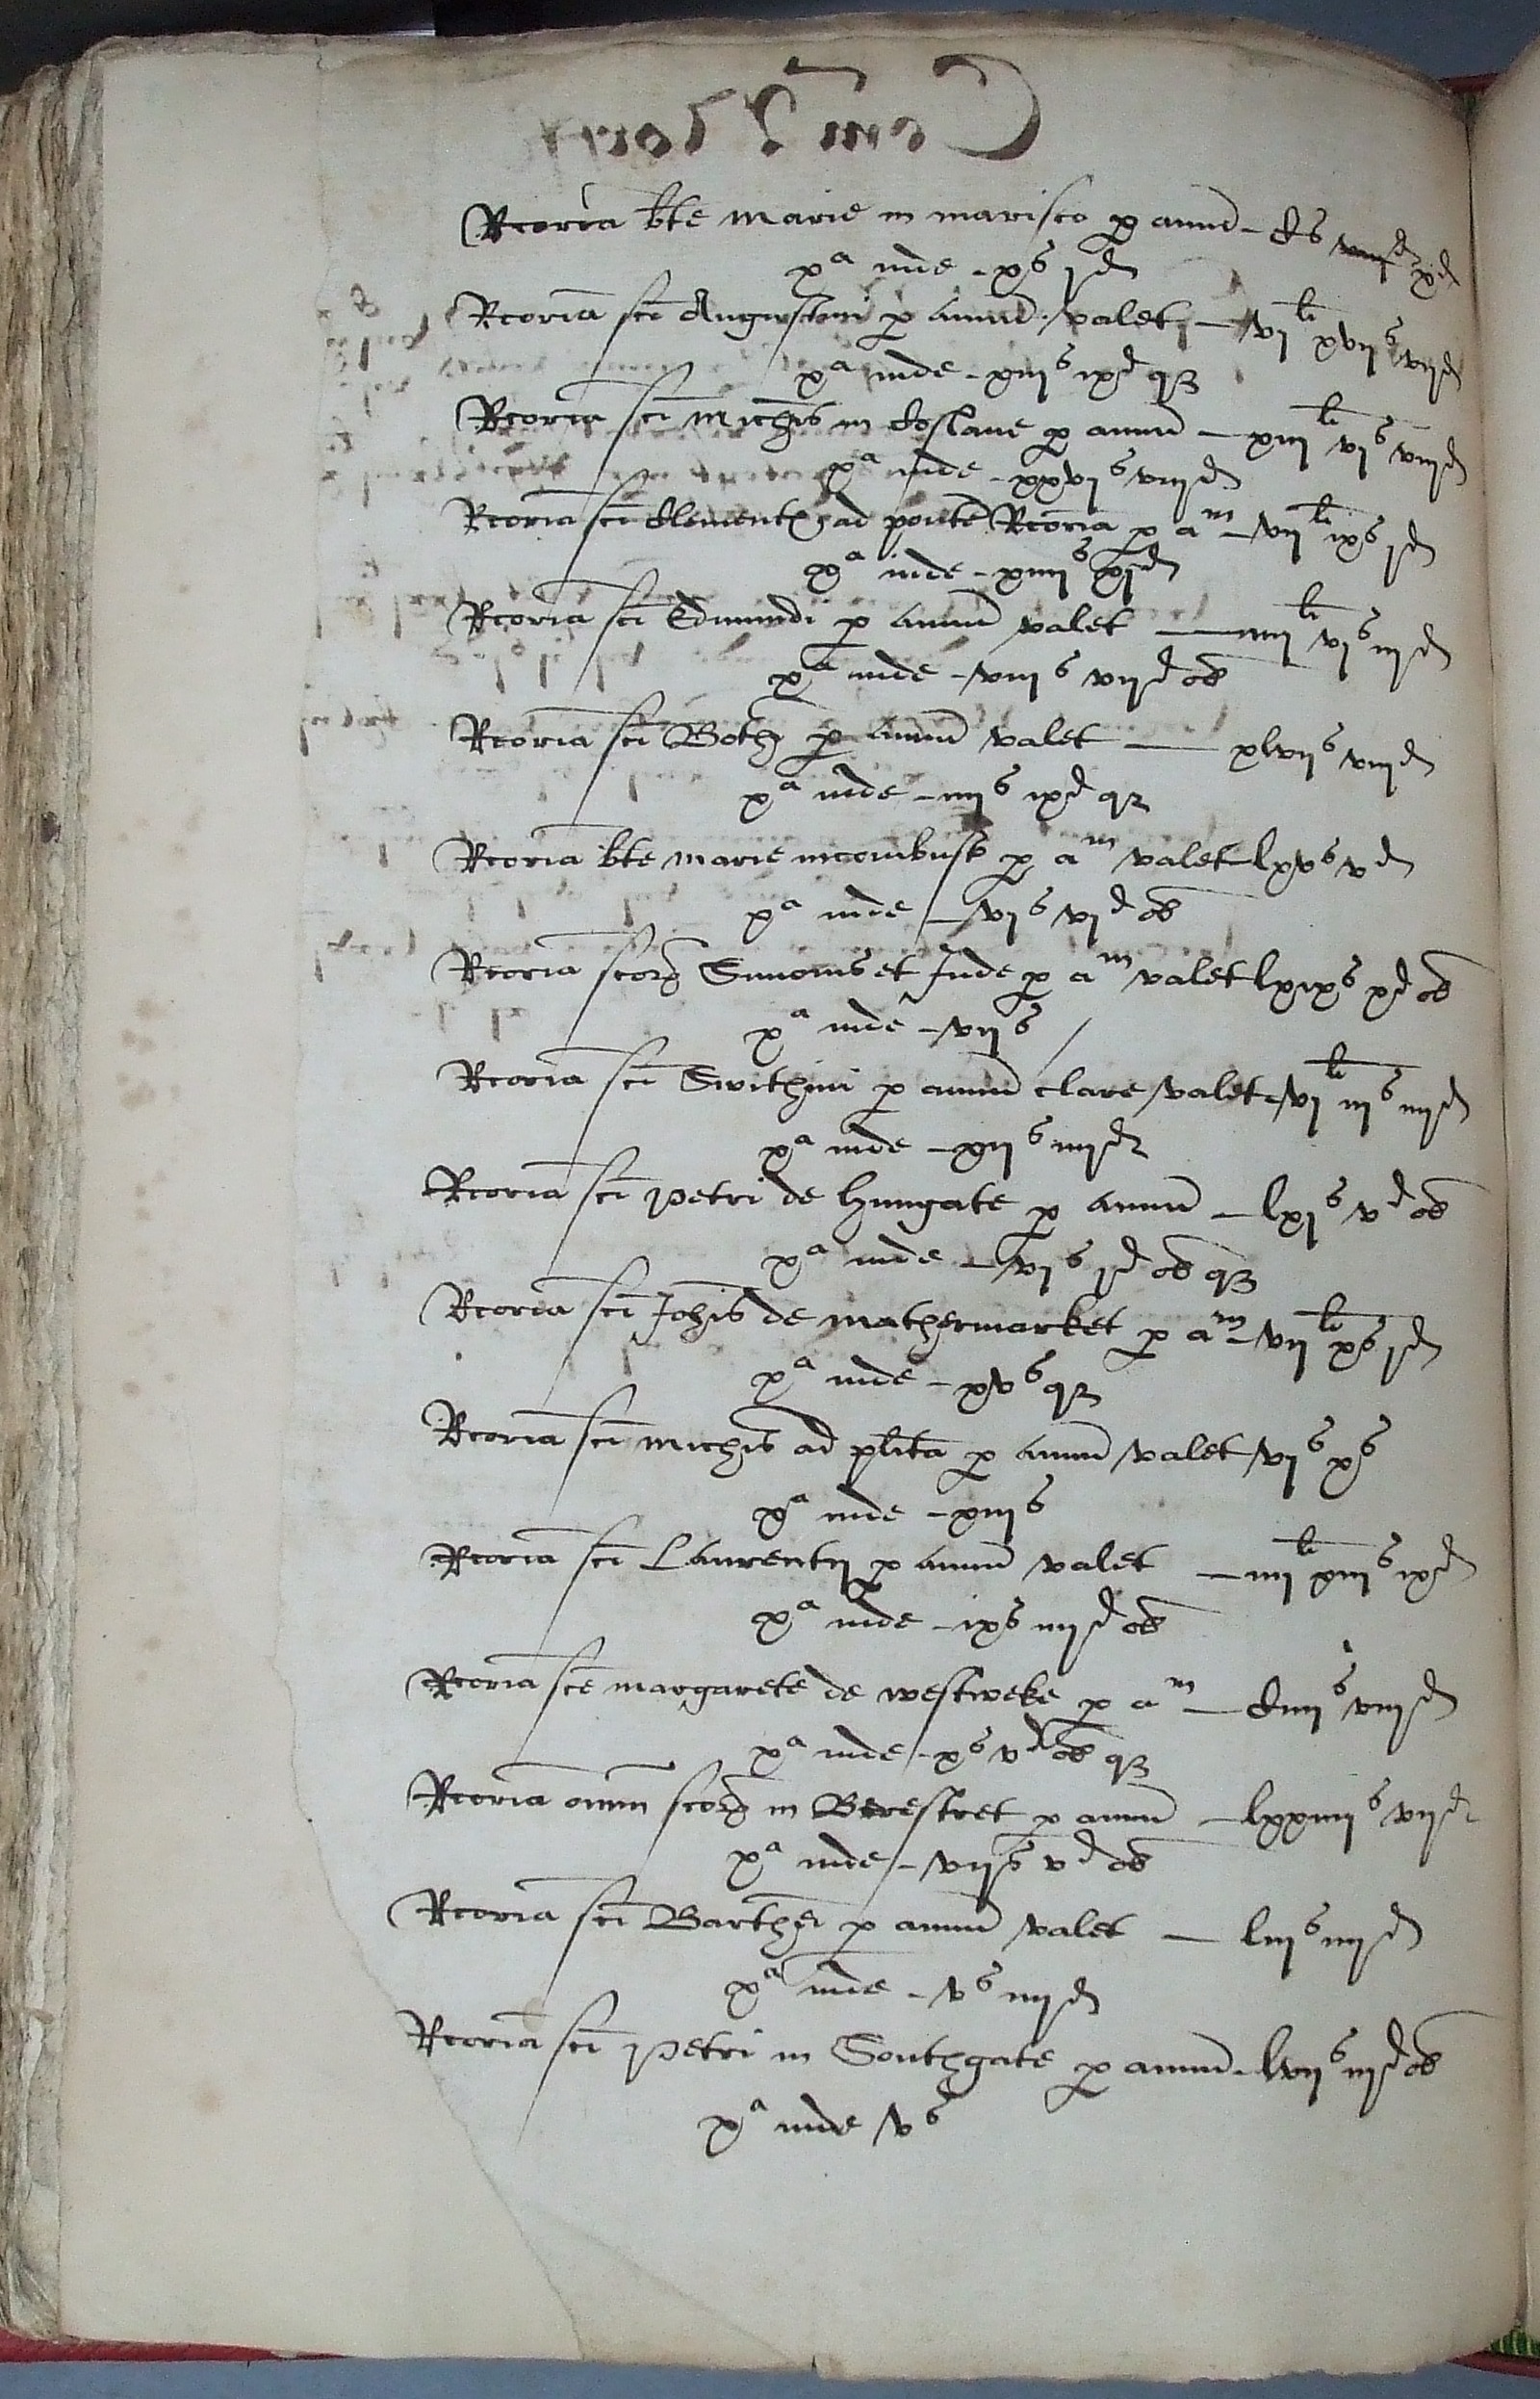 Rcoria bte marie in marisco p annu - Cs viijd xd
xa inde - xs jd
Rcoria sci Augustini p annu valet - vj li xvijs vijd
xa inde - xiijs ixd qz
Rcoria sci Michis in Coslane p annu - xiij li vjs viijd
xa inde - xxvjs viijd
Rcoria sci Clementis ad ponte Rcoria p am - vij li ixs jd
xa inde - xiiijs xjd
Rcoria sci Edmundi p annu valet - iiij li vjs iijd
xa inde - viijs vijd ob
Rcoria sci Bothi p annu valet - xlvijs viijd
xa inde - iiijs ixd qz
Rcoria bte marie incombust p am valet lxvs vd
xa inde - vjs vjd ob
Rcoria scorz Simonis et Jude p am valet lxixs xd ob
xa inde - vijs
Rcoria sci Swithini p annu clare valet - vj li iijs iiijd
xa inde - xijs iiijd
Rcoria sci Petri de hungate p annu - lxjs vd ob
xa inde - vjs jd ob qz
Rcoria sci Johis de mathermarket p am - vij li xs jd
xa inde - xvs qz
Rcoria sci Michis ad plita p annu valet vjs xs
xa inde - xiijs
Rcoria sci Laurentij p annu valet - iiij li xiijs ixd
xa inde - ixs iiijd ob
Rcoria sce margarete de westweke p am - Ciiijs viijd
xa inde - xs vd ob qz
Rcoria omm scorz in Berestret p annu - lxxiiijs vijd
xa inde - vijs vd ob
Rcoria sci Barthi p annu valet - liijs iiijd
xa inde - vs iiijd
Rcoria sci Petri in Southgate p annu - lvijs iijd ob
xa inde vs